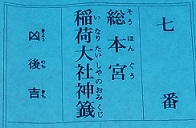 七番
総本宮
そうほんぐう
稲荷大社神籤
いなりたいしやのおみくじ
凶後吉